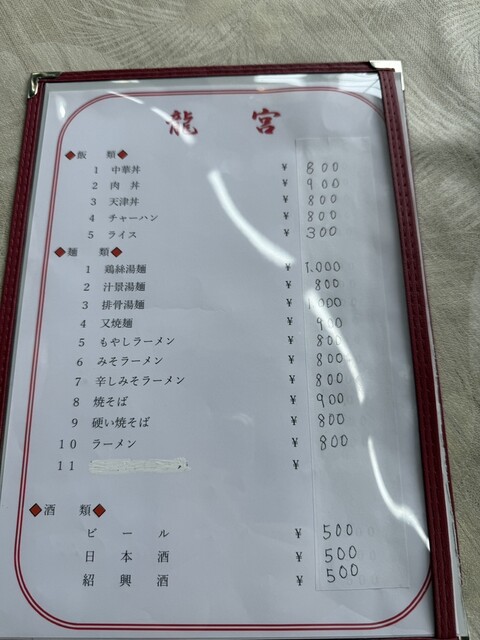 龍宮
◆飯 類◆
1 中華丼 ¥ 800
2 肉丼 ¥ 900
3 天津丼 ¥ 800
4 チャーハン ¥ 800
5 ライス ¥ 300
◆麺 類◆
1 鶏絲湯麺 ¥ 1.000
2 汁景湯麺 ¥ 800
3 排骨湯麺 ¥ 1.000
4 叉焼麺 ¥ 900
5 もやしラーメン ¥ 800
6 みそラーメン ¥ 800
7 辛しみそラーメン ¥ 800
8 焼そば ¥ 900
9 硬い焼そば ¥ 800
10 ラーメン ¥ 800
11 ¥
◆酒 類◆
ビール ¥ 500
日本酒 ¥ 500
紹興酒 ¥ 500